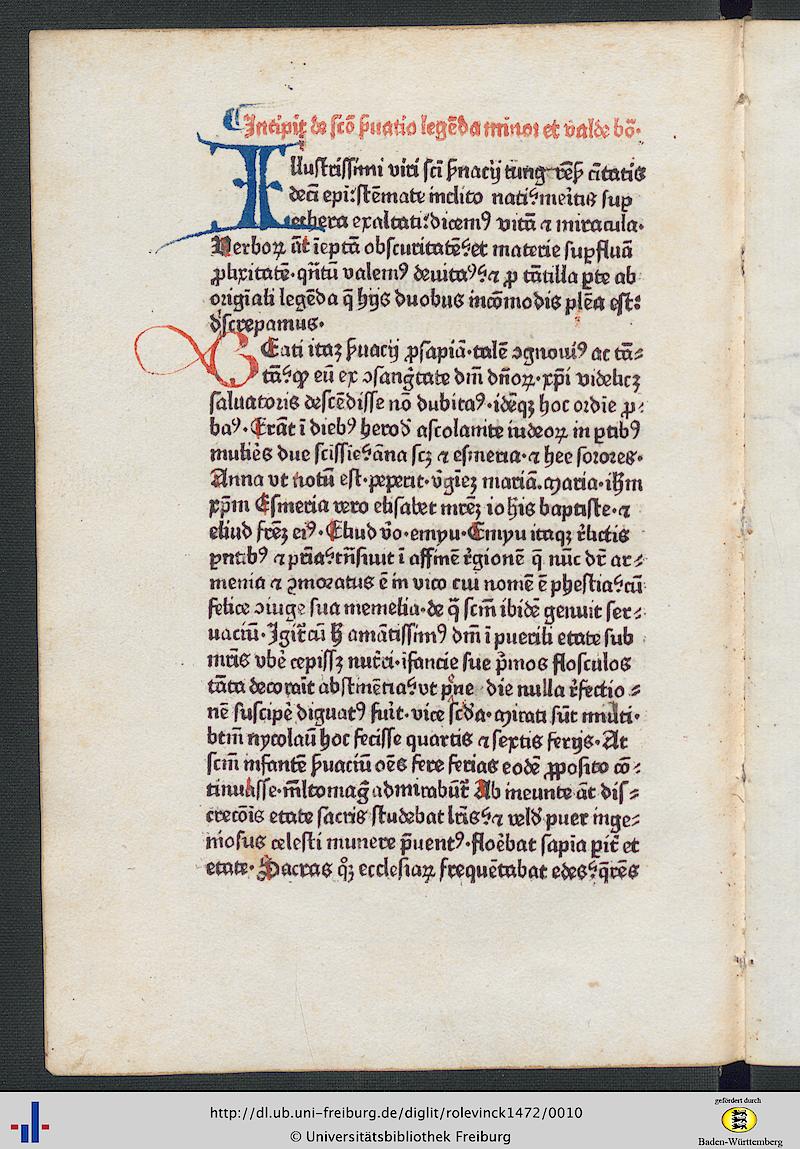 Incipit de scō ẜuatio legēda minor et valde bō·
Illustrissimi viri sci ẜnacij tung rēẜ citatis
deci epi: stēmate inclito nati: meritis sup
ethera exaltati: dicemꝰ vitā ⁊ miracula·
Verboꝝ āt ieptā obscuritatē: et materie suꝑfluā
ꝓlixitatē· qn̄tū valemꝰ deuitaꝰ: ⁊ ꝓ tātilla ꝑte ab
origīali legēda q̄ hijs duobus incōmodis plēa est:
dscrepamus·
Beati itaꝫ ẜuacij ꝓsapiā· talē ꝯgnouiꝰ ac tā⸗
tā: ꝙ eū ex ꝯsanḡtate dīm dn̄oꝝ· xp̄i videlicꝫ
saluatoris descēdisse nō dubitaꝰ· ideqꝫ hoc ordīe ꝓ⸗
baꝰ· Erāt ī diebꝰ herod ascolanite iudeoꝝ in ꝑtibꝰ
muliēs due scissie: āna scꝫ ⁊ esmeria· ⁊ hee sorores·
Anna vt notū est· peperit· v̄giēꝫ mariā. Maria· ihm
xp̄m Esmeria vero elisabet mrēꝫ iohis baptiste· ⁊
eliud frēꝫ eiꝰ· Eliud v̄o· emyu· Emyu itaqꝫ r̄lictis
pn̄tibꝰ ⁊ pr̄ia: tn̄siuit ī affinē r̄gionē q̄ nūc dr̄ ar⸗
menia ⁊ ꝯmoratus ē in vico cui nomē ē phestia: cū
felice ꝯiuge sua memelia· de q̄ scm̄ ibidē genuit ser⸗
uaciū· Igit̄ cū h̄ amātissimꝰ dīm ī puerili etate sub
mr̄is vbē cepissꝫ nut̄ri· ifancie sue p̄mos flosculos
tāta decorait abstinētia: vt pn̄e die nulla r̄fectio⸗
nē suscipē diguatꝰ fuīt· vice scd̄a· Mirati sūt multi·
btm̄ nycolaū hoc fecisse quartis ⁊ sextis ferijs· At
scm̄ infantē ẜuaciū oēs fere ferias eodē ꝓposito cō⸗
tinuasse· m̄lto maḡ admirabūt̄ Ab ineunte āt dis⸗
crecōis etate sacris studebat lr̄is: ⁊ veld puer inge⸗
niosus celesti munere p̄uentꝰ· floēbat sapīa ꝑit̄ et
etate· Sacras qꝫ ecclesiaꝝ frequētabat edes: q̄rēs
http://dl.ub.uni-freiburg.de/diglit/rolevinck1472/0010
© Universitätsbibliothek Freiburg
gefördert durch
Baden-Württemberg